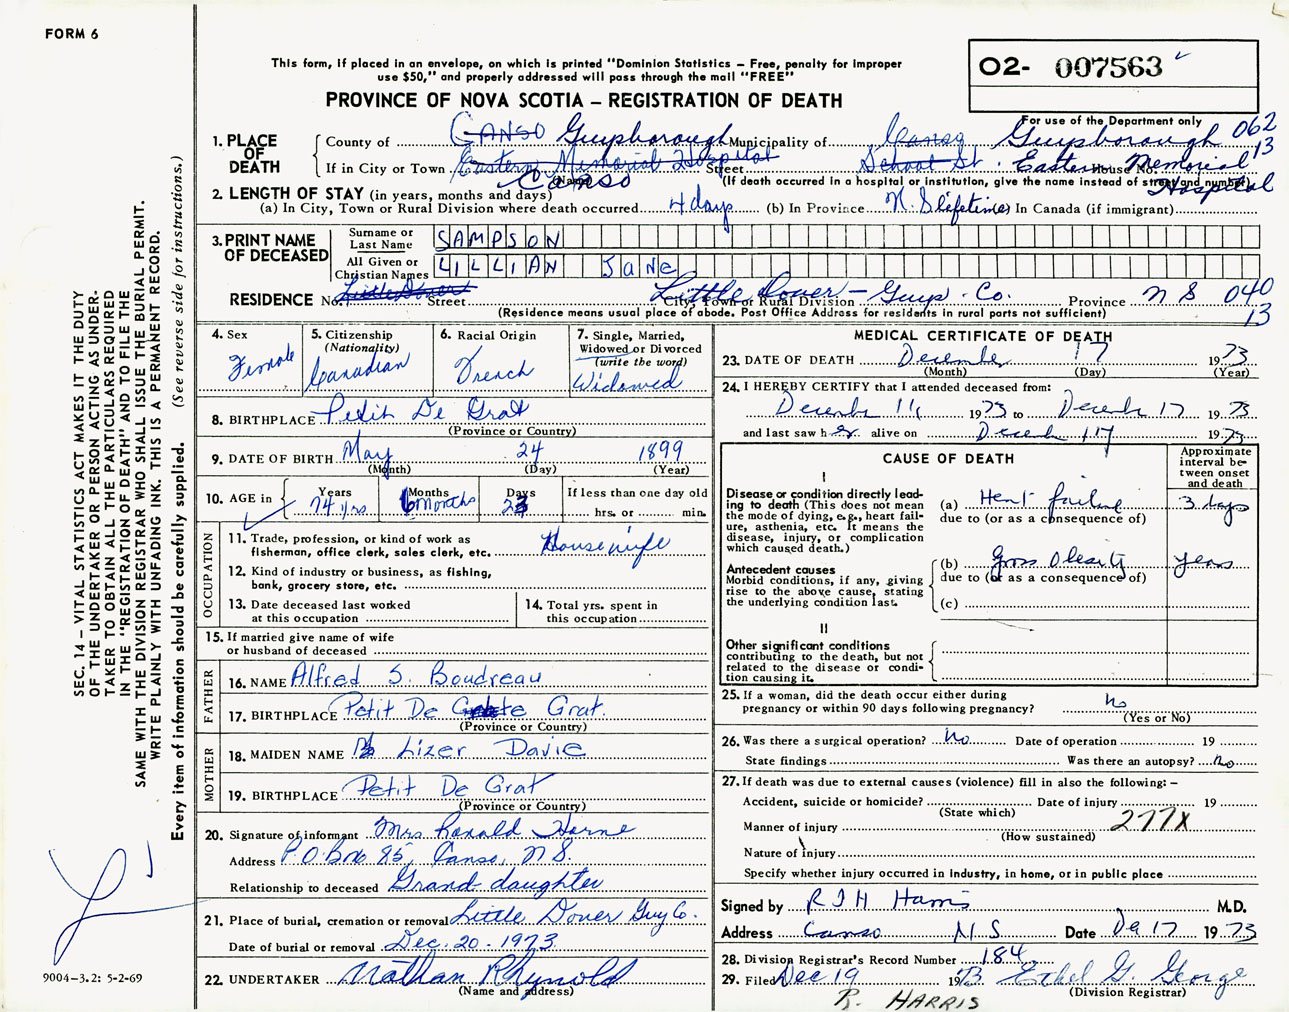 FORM 6
This form, if placed in an envelope, on which is printed "Dominion Statistics – Free, penalty for improper
use $50," and properly addressed will pass through the mail "FREE"
PROVINCE OF NOVA SCOTIA – REGISTRATION OF DEATH
O2- 007563
For use of the Department only
062
13
1. PLACE OF DEATH
County of CANSO Guysborough Municipality of Canso Guysborough
If in City or Town Eastern Memorial Hospital Canso (Name) Street School St. Eastern Memorial Hospital House No.
(If death occurred in a hospital or institution, give the name instead of street and number)
2. LENGTH OF STAY (in years, months and days)
(a) In City, Town or Rural Division where death occurred 4 days (b) In Province N.S lifetime In Canada (if immigrant)
3. PRINT NAME OF DECEASED
Surname or Last Name SAMPSON
All Given or Christian Names LILLIAN JANE
RESIDENCE No. Little Dover Street Little Dover – Guys. Co. City, Town or Rural Division Province N S 040
13
(Residence means usual place of abode. Post Office Address for residents in rural parts not sufficient)
4. Sex
Female
5. Citizenship
(Nationality)
Canadian
6. Racial Origin
French
7. Single, Married,
Widowed or Divorced
(write the word)
Widowed
8. BIRTHPLACE Petit De Grat
(Province or Country)
9. DATE OF BIRTH May 24 1899
(Month) (Day) (Year)
10. AGE in Years Months Days If less than one day old
74 yrs 6 months 23 hrs. or min.
OCCUPATION
11. Trade, profession, or kind of work as
fisherman, office clerk, sales clerk, etc. Housewife
12. Kind of industry or business, as fishing,
bank, grocery store, etc.
13. Date deceased last worked
at this occupation
14. Total yrs. spent in
this occupation
15. If married give name of wife
or husband of deceased
FATHER
16. NAME Alfred S. Boudreau
17. BIRTHPLACE Petit De Grat.
(Province or Country)
MOTHER
18. MAIDEN NAME Lizer Davie
19. BIRTHPLACE Petit De Grat
(Province or Country)
20. Signature of informant Mrs Ronald Horne
Address P.O Box 85, Canso, N S.
Relationship to deceased Grand daughter
21. Place of burial, cremation or removal Little Dover Guy Co.
Date of burial or removal Dec. 20 - 1973
22. UNDERTAKER Nathan Rhynold
(Name and address)
MEDICAL CERTIFICATE OF DEATH
23. DATE OF DEATH December 17 1973
(Month) (Day) (Year)
24. I HEREBY CERTIFY that I attended deceased from:
December 14 1973 to December 17 1973
and last saw her alive on December 17 1973
CAUSE OF DEATH
Approximate
interval be-
tween onset
and death
I
Disease or condition directly lead-
ing to death (This does not
mean the mode of dying, e.g., heart fail-
ure, asthenia, etc. It means the
disease, injury, or complication
which caused death.)
(a) Heart failure 3 days
due to (or as a consequence of)
Antecedent causes
Morbid conditions, if any, giving
rise to the above cause, stating
the underlying condition last.
(b) Gross Obesity years
due to (or as a consequence of)
(c)
II
Other significant conditions
contributing to the death, but not
related to the disease or condi-
tion causing it.
25. If a woman, did the death occur either during
pregnancy or within 90 days following pregnancy? No
(Yes or No)
26. Was there a surgical operation? No Date of operation 19
State findings Was there an autopsy? No
27. If death was due to external causes (violence) fill in also the following: –
Accident, suicide or homicide? Date of injury 19
(State which)
Manner of injury 277X
(How sustained)
Nature of injury
Specify whether injury occurred in industry, in home, or in public place
Signed by R J H Harris M.D.
Address Canso N S Date De 17 1973
28. Division Registrar's Record Number 184
29. Filed Dec 19 1973 Ethel G. George
(Division Registrar)
R. HARRIS
SEC. 14 – VITAL STATISTICS ACT MAKES IT THE DUTY
OF THE UNDERTAKER OR PERSON ACTING AS UNDER-
TAKER TO OBTAIN ALL THE PARTICULARS REQUIRED
IN THE "REGISTRATION OF DEATH" AND TO FILE THE
SAME WITH THE DIVISION REGISTRAR WHO SHALL ISSUE THE BURIAL PERMIT.
WRITE PLAINLY WITH UNFADING INK. THIS IS A PERMANENT RECORD.
Every item of information should be carefully supplied. (See reverse side for instructions.)
9004-3.2: 5-2-69